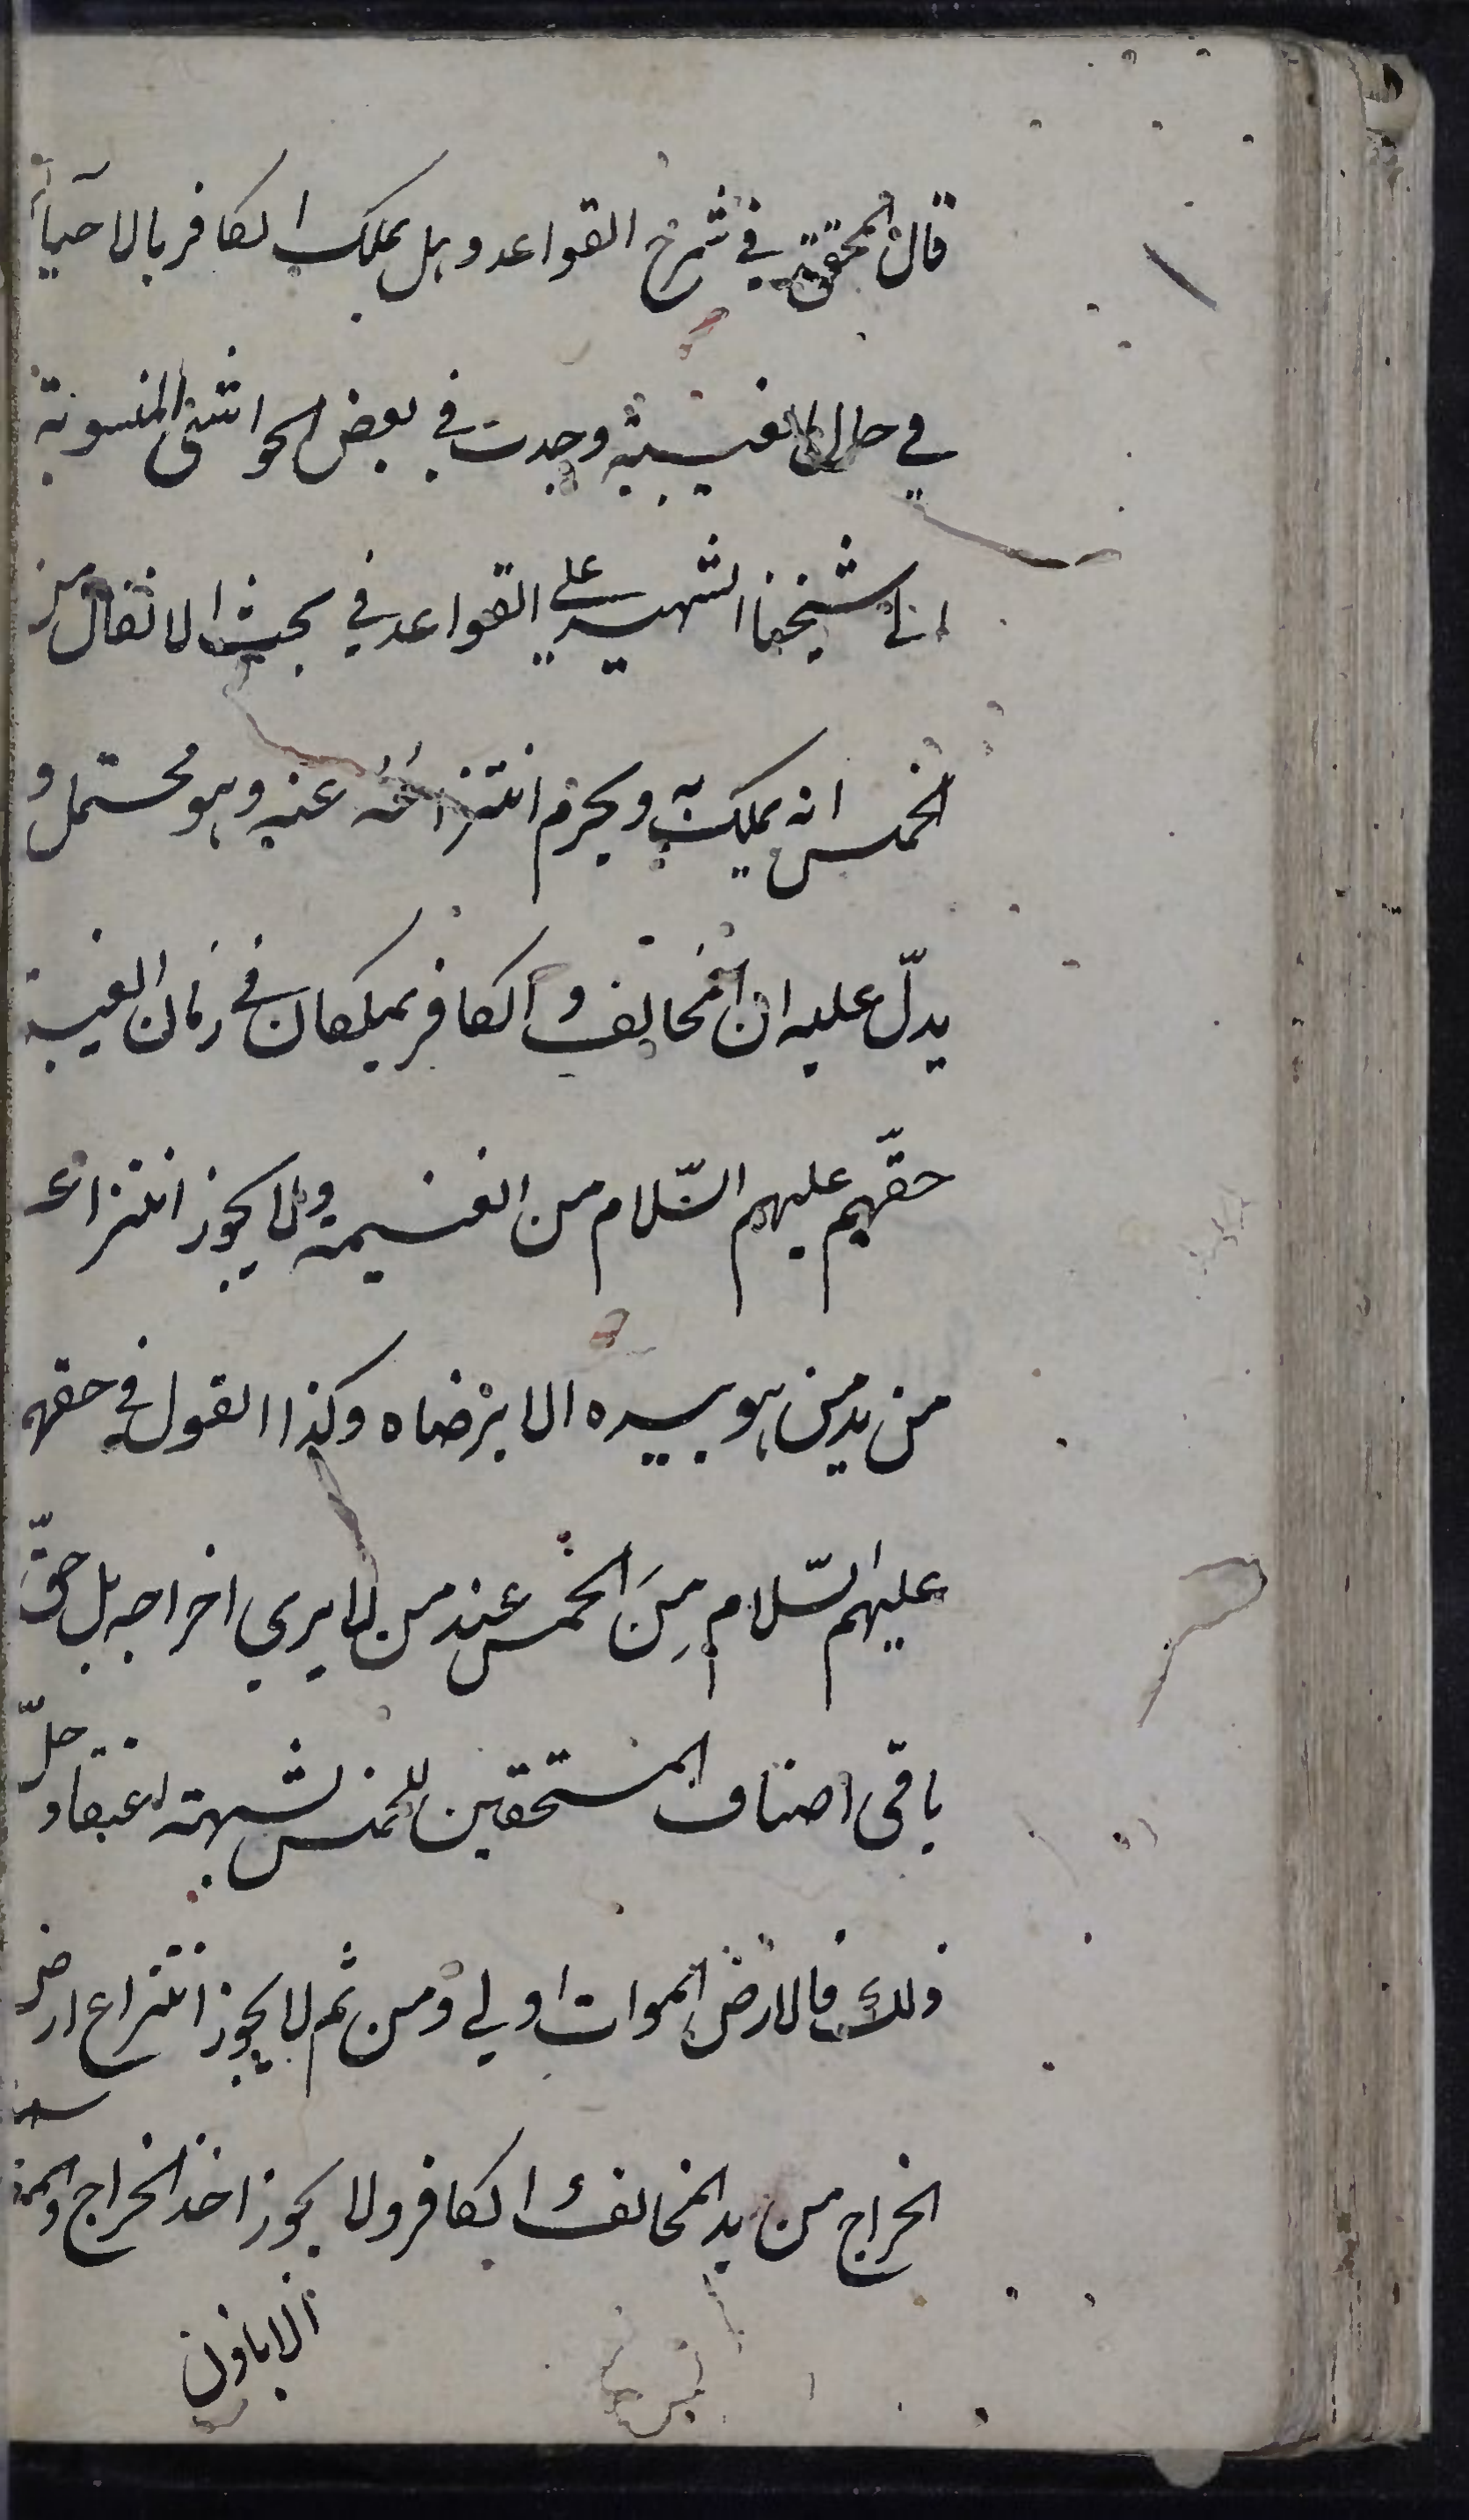 قال المحقق في شرح القواعد وهل يملك الكافر بالاحياء
في حال الغيبة وجدت في بعض الحواشي المنسوبة
الى شيخنا الشهيد على القواعد في بحث الانفال من
الخمس انه يملك به ويحرم انتزاعه عنه وهو محتمل و
يدلّ عليه ان المخالف والكافر يملكان في زمان الغيبة
حقّهم عليهم السّلام من الغنيمة ولا يجوز انتزاعه
من يد من هو بيده الا برضاه وكذا القول في حقهم
عليهم السّلام مِنَ الخمس عند من لا يرى اخراجه بل حقّ
باقي اصناف المستحقين للخمس لشبهة اعتقاد حلّ
ذلك فالارض الموات اولى ومن ثم لا يجوز انتزاع ارض
الخراج من يد المخالف والكافر ولا يجوز اخذ الخراج والمقاسمة
الا باذن